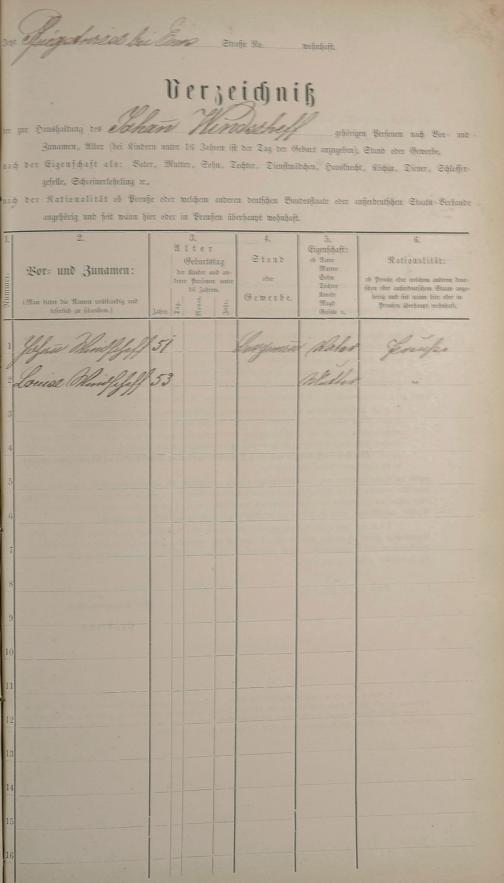 bei Ems Straße No. wohnhaft.
Verzeichniß
der zur Haushaltung des Johann Windscheff gehörigen Personen nach Vor- und
Zunamen, Alter (bei Kindern unter 16 Jahren ist der Tag der Geburt anzugeben), Stand oder Gewerbe,
nach der Eigenschaft als: Vater, Mutter, Sohn, Tochter, Dienstmädchen, Hausknecht, Köchin, Diener, Schlosser-
geselle, Schreinerlehrling ꝛc.,
nach der Nationalität ob Preuße oder welchem anderen deutschen Bundesstaate oder außerdeutschen Staats-Verbande
angehörig und seit wann hier oder in Preußen überhaupt wohnhaft.
1.
Nummer.
2.
Vor- und Zunamen:
(Man bittet die Namen vollständig und
leserlich zu schreiben.)
3.
Alter
Geburtstag
der Kinder und an-
derer Personen unter
16 Jahren.
Jahre. Tag. Monat. Jahr.
4.
Stand
oder
Gewerbe.
5.
Eigenschaft:
ob Vater
Mutter
Sohn
Tochter
Knecht
Magd
Geselle ꝛc.
6.
Nationalität:
ob Preuße oder welchem anderen deut-
schen oder außerdeutschen Staate ange-
hörig und seit wann hier oder in
Preußen überhaupt wohnhaft.
1 Johann Windscheff 51 Bergmann Vater Preuße
2 Louise Windscheff 53 Mutter "
3
4
5
6
7
8
9
10
11
12
13
14
15
16